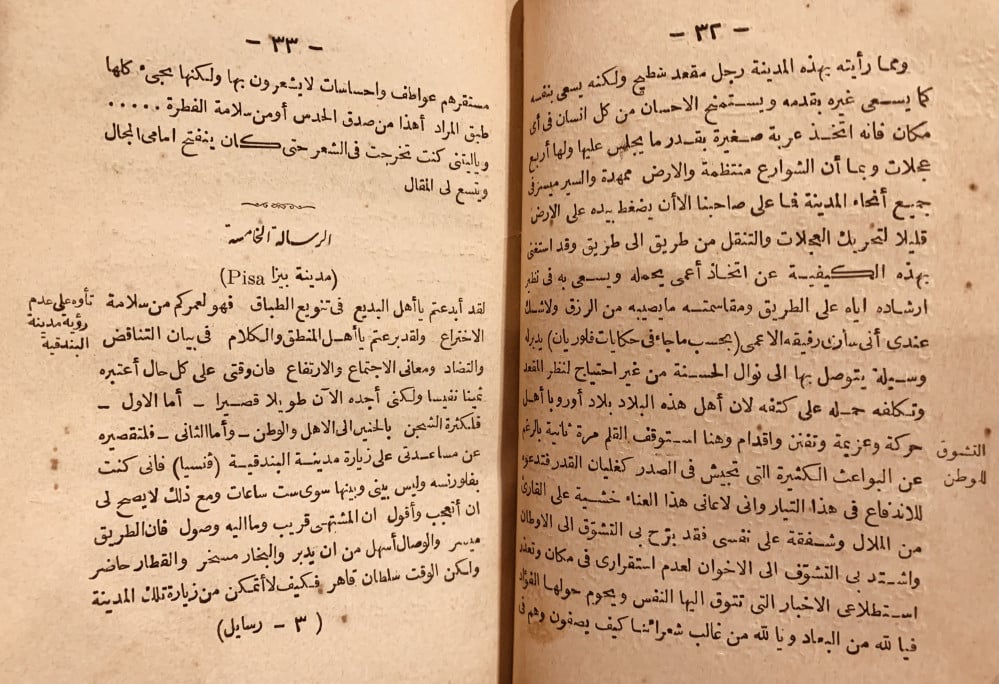 - ٣٢ -
ومما رأيته بهذه المدينة رجل مقعد شطيح ولكنه يسعى بنفسه
كما يسعى غيره بقدمه ويستمنح الاحسان من كل انسان فى أى
مكان فانه اتخذ عربة صغيرة بقدر ما يجلس عليها ولها أربع
عجلات وبما أن الشوارع منتظمة والارض ممهدة والسير ميسر فى
جميع أنحاء المدينة فما على صاحبنا الا أن يضغط بيده على الارض
قليلا لتحريك العجلات والتنقل من طريق الى طريق وقد استغنى
بهذه الكيفية عن اتخاذ أعمى يحمله ويسعى به فى نظير
ارشاده اياه على الطريق ومقاسمته مايصيبه من الرزق ولاشك
عندى أنى سأرى رفيقه الاعمى (بحسب ماجاء فى حكايات فلوريان) يدبر له
وسيلة يتوصل بها الى نوال الحسنة من غير احتياج لنظر المقعد
وتكلفه حمله على كتفه لان أهل هذه البلاد بلاد أوروبا أهل
حركة وعزيمة وتفنن واقدام وهنا استوقف القلم مرة ثانية بالرغم
التشوق للوطن
عن البواعث الكثيرة التى تجيش فى الصدر كغليان القدر فتدعوه
للاندفاع فى هذا التيار وانى لاعانى هذا العناء خشية على القارئ
من الملال وشفقة على نفسى فقد برّح بى التشوّق الى الاوطان
واشتد بى التشوّف الى الاخوان لعدم استقرارى فى مكان وتعذر
استطلاعى الاخبار التى تتوق اليها النفس ويحوم حولها الفؤاد
فيا لله من البعاد ويا لله من غالب شعرائنا كيف يصفون وهم فى
- ٣٣ -
مستقرهم عواطف واحساسات لايشعرون بها ولكنها يجىء كلها
طبق المراد أهذا من صدق الحدس أومن سلامة الفطرة .....
وياليتنى كنت تخرجت فى الشعر حتى كان ينفتح امامى المجال
ويتسع لى المقال
الرسالة الخامسة
(مدينة بيزا Pisa)
لقد أبدعتم ياأهل البديع فى تنويع الطباق فهو لعمركم من سلامة
تأوه على عدم رؤية مدينة البندقية
الاختراع ولقد برعتم ياأهل المنطق والكلام فى بيان التناقض
والتضاد ومعانى الاجتماع والارتفاع فان وقتى على كل حال أعتبره
ثمنا نفيسا ولكنى أجده الآن طويلا قصيرا - أما الاول -
فلكثرة الشجن بالحنين الى الاهل والوطن - وأما الثانى - فلتقصيره
عن مساعدتى على زيارة مدينة البندقية (ڤنسيا) فانى كنت
بفلورنسه وليس بينى وبينها سوى ست ساعات ومع ذلك لايصح لى
ان أتعجب وأقول ان المشتهى قريب وما اليه وصول فان الطريق
ميسر والوصال أسهل من ان يدبر والبخار مسخر والقطار حاضر
ولكن الوقت سلطان قاهر فكيف لا أتمكن من زيارة تلك المدينة
(٣ - رسايل)